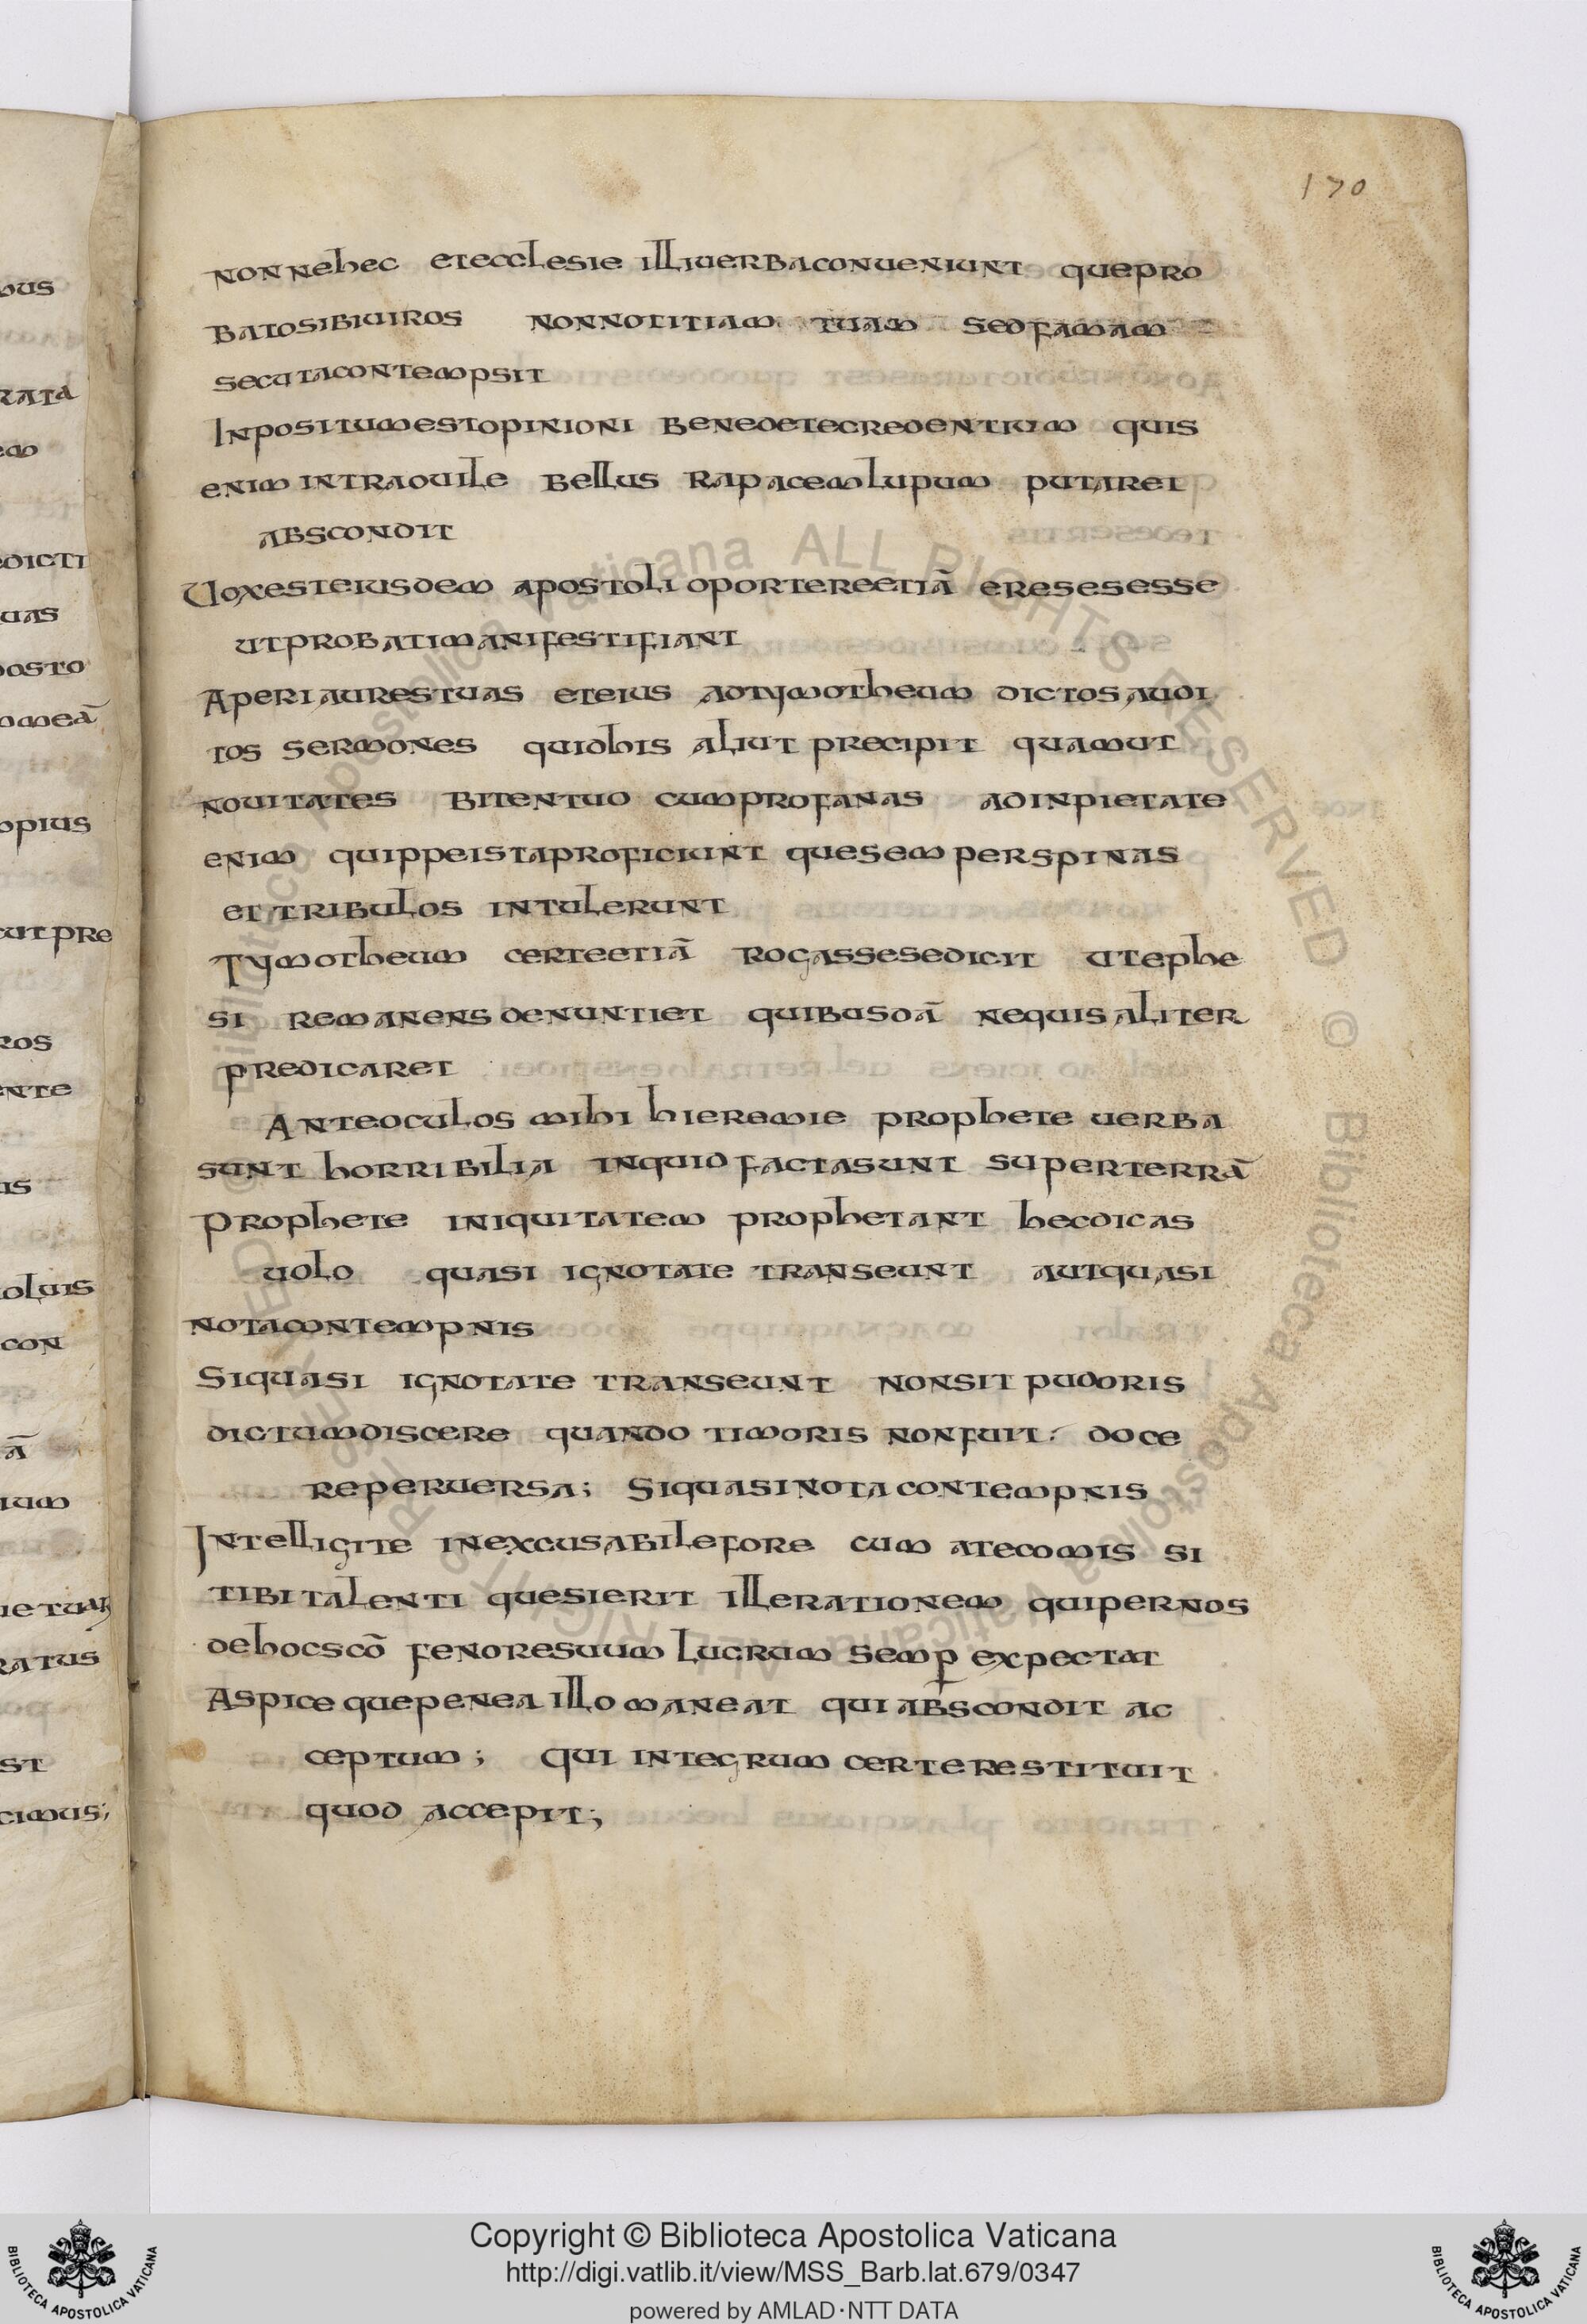 170
nonnehec etecclesie illiuerbaconueniunt quepro
batosibiuiros nonnotitiam tuam sedfamam
secutacontempsit
Inpositumestopinioni benedetecredentium quis
enim intraouile bellus rapacemlupum putaret
abscondit
Uoxesteiusdem apostoli oportereetiā eresesesse
utprobatimanifestifiant
Aperiaurestuas eteius adtymotheum dictos audi
tos sermones quidhis aliut precipit quamut
nouitates bitentuo cumprofanas adinpietate
enim quippeistaproficiunt quesemperspinas
et tribulos intulerunt
Tymotheum certeetiā rogassesedicit utephe
si remanens denuntiet quibusdā nequis aliter
predicaret
Anteoculos mihi hieremie prophete uerba
sunt horribilia inquid factasunt superterrā
prophete iniquitatem prophetant hecdicas
uolo quasi ignotate transeunt autquasi
notacontempnis
Siquasi ignotate transeunt nonsit pudoris
dictumdiscere quando timoris nonfuit doce
reperuersa; Siquasinota contempnis
Intelligite inexcusabilefore cum atecomis si
tibi talenti quesierit illerationem quipernos
dehocscō fenoresuum lucrum semp expectat
Aspice quepenea illo maneat qui abscondit ac
ceptum; qui integrum certerestituit
quod accepit;
bus
rata
em
dicti
uas
posto
meā
opius
utpre
ros
ente
is
oluis
con
ā
ium
ratus
st
cimus;
Biblioteca Apostolica Vaticana ALL RIGHTS RESERVED © Biblioteca Apostolica Vaticana ALL RIGHTS RESERVED ©
Copyright © Biblioteca Apostolica Vaticana
http://digi.vatlib.it/view/MSS_Barb.lat.679/0347
powered by AMLAD·NTT DATA
BIBLIOTECA APOSTOLICA VATICANA
BIBLIOTECA APOSTOLICA VATICANA